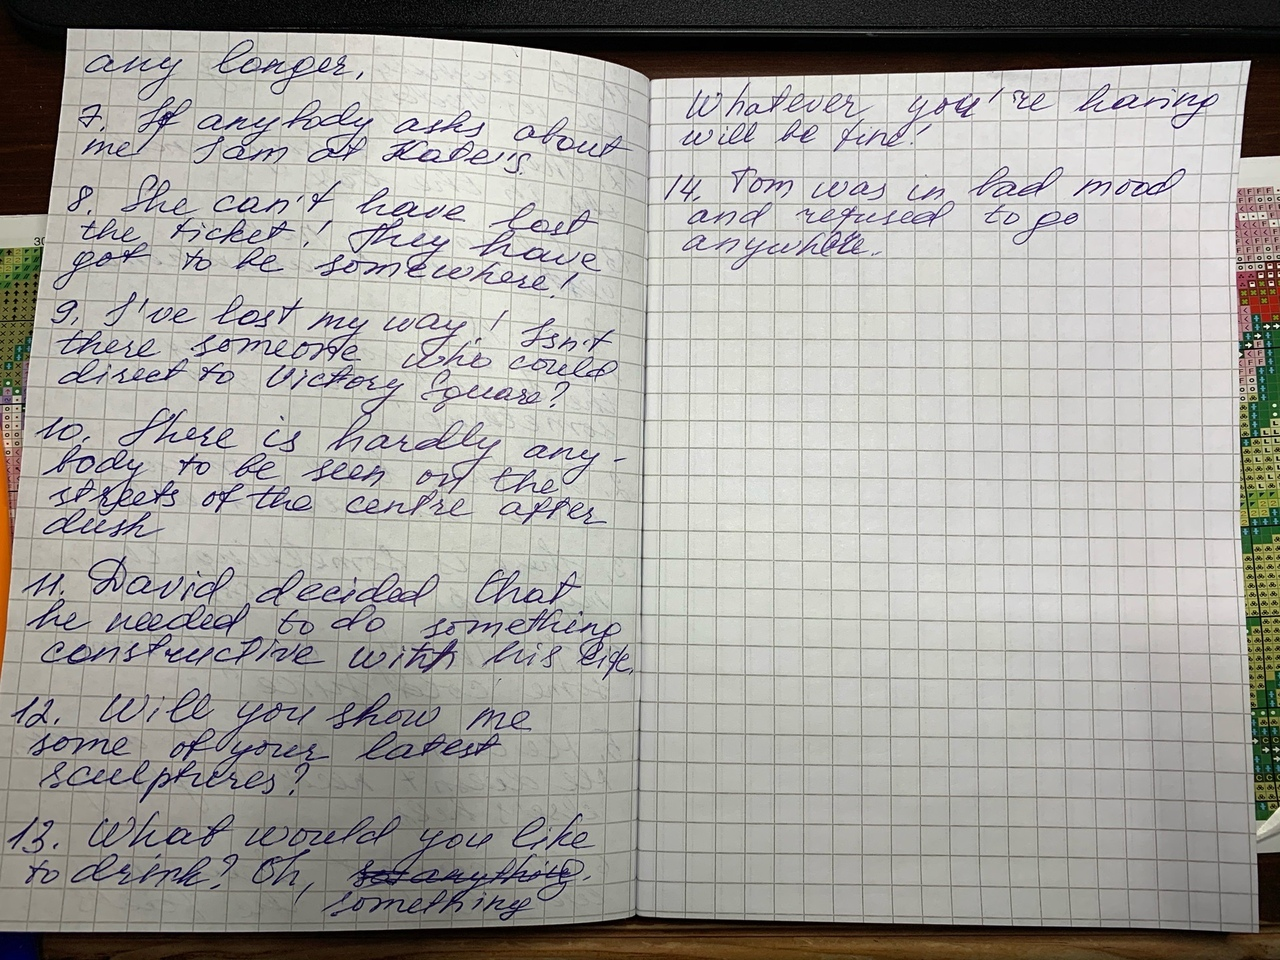 any longer.
7. If anybody asks about
me I am at Kate's.
8. She can't have lost
the ticket! They have
got to be somewhere!
9. I've lost my way! Isn't
there someone who could
direct to Victory Square?
10. There is hardly any-
body to be seen on the
streets of the centre after
dusk
11. David decided that
he needed to do something
constructive with his life.
12. Will you show me
some of your latest
sculptures?
13. What would you like
to drink? Oh, anything.
something
Whatever you're having
will be fine!
14. Tom was in bad mood
and refused to go
anywhere.